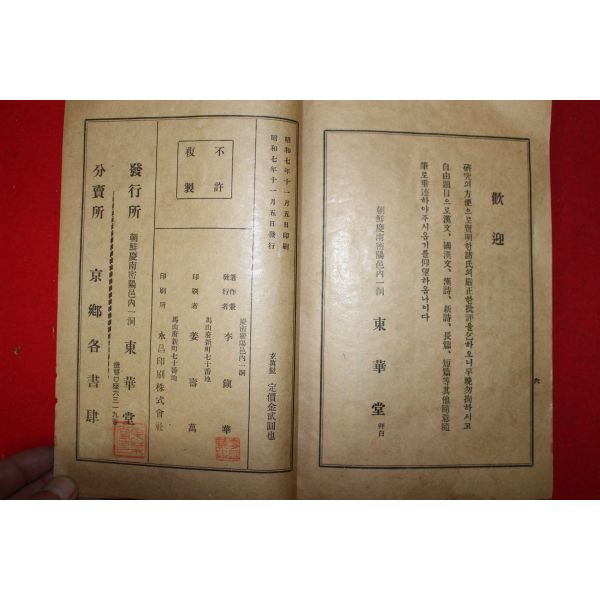 歡迎
硏究의方便으로賢明한諸氏의嚴正한批評을乞하오니早晩勿拘하시고
自由題目으로漢文、國漢文、漢詩、新詩、長篇、短篇等其他隨意隨
筆로垂迹하야주시옵기를仰望하옵나이다
朝鮮慶南密陽邑內一洞
東華堂 拜白
六
昭和七年十一月五日印刷
昭和七年十一月五日發行
定價金貳圓也
不許
複製
慶南密陽邑內一洞
著作兼
發行者 李鎭華
馬山府新町七十番地
印刷者 姜壽萬
馬山府新町七十番地
印刷所 永昌印刷株式會社
發行所 朝鮮慶南密陽邑內一洞 東華堂
分賣所 京鄕各書肆